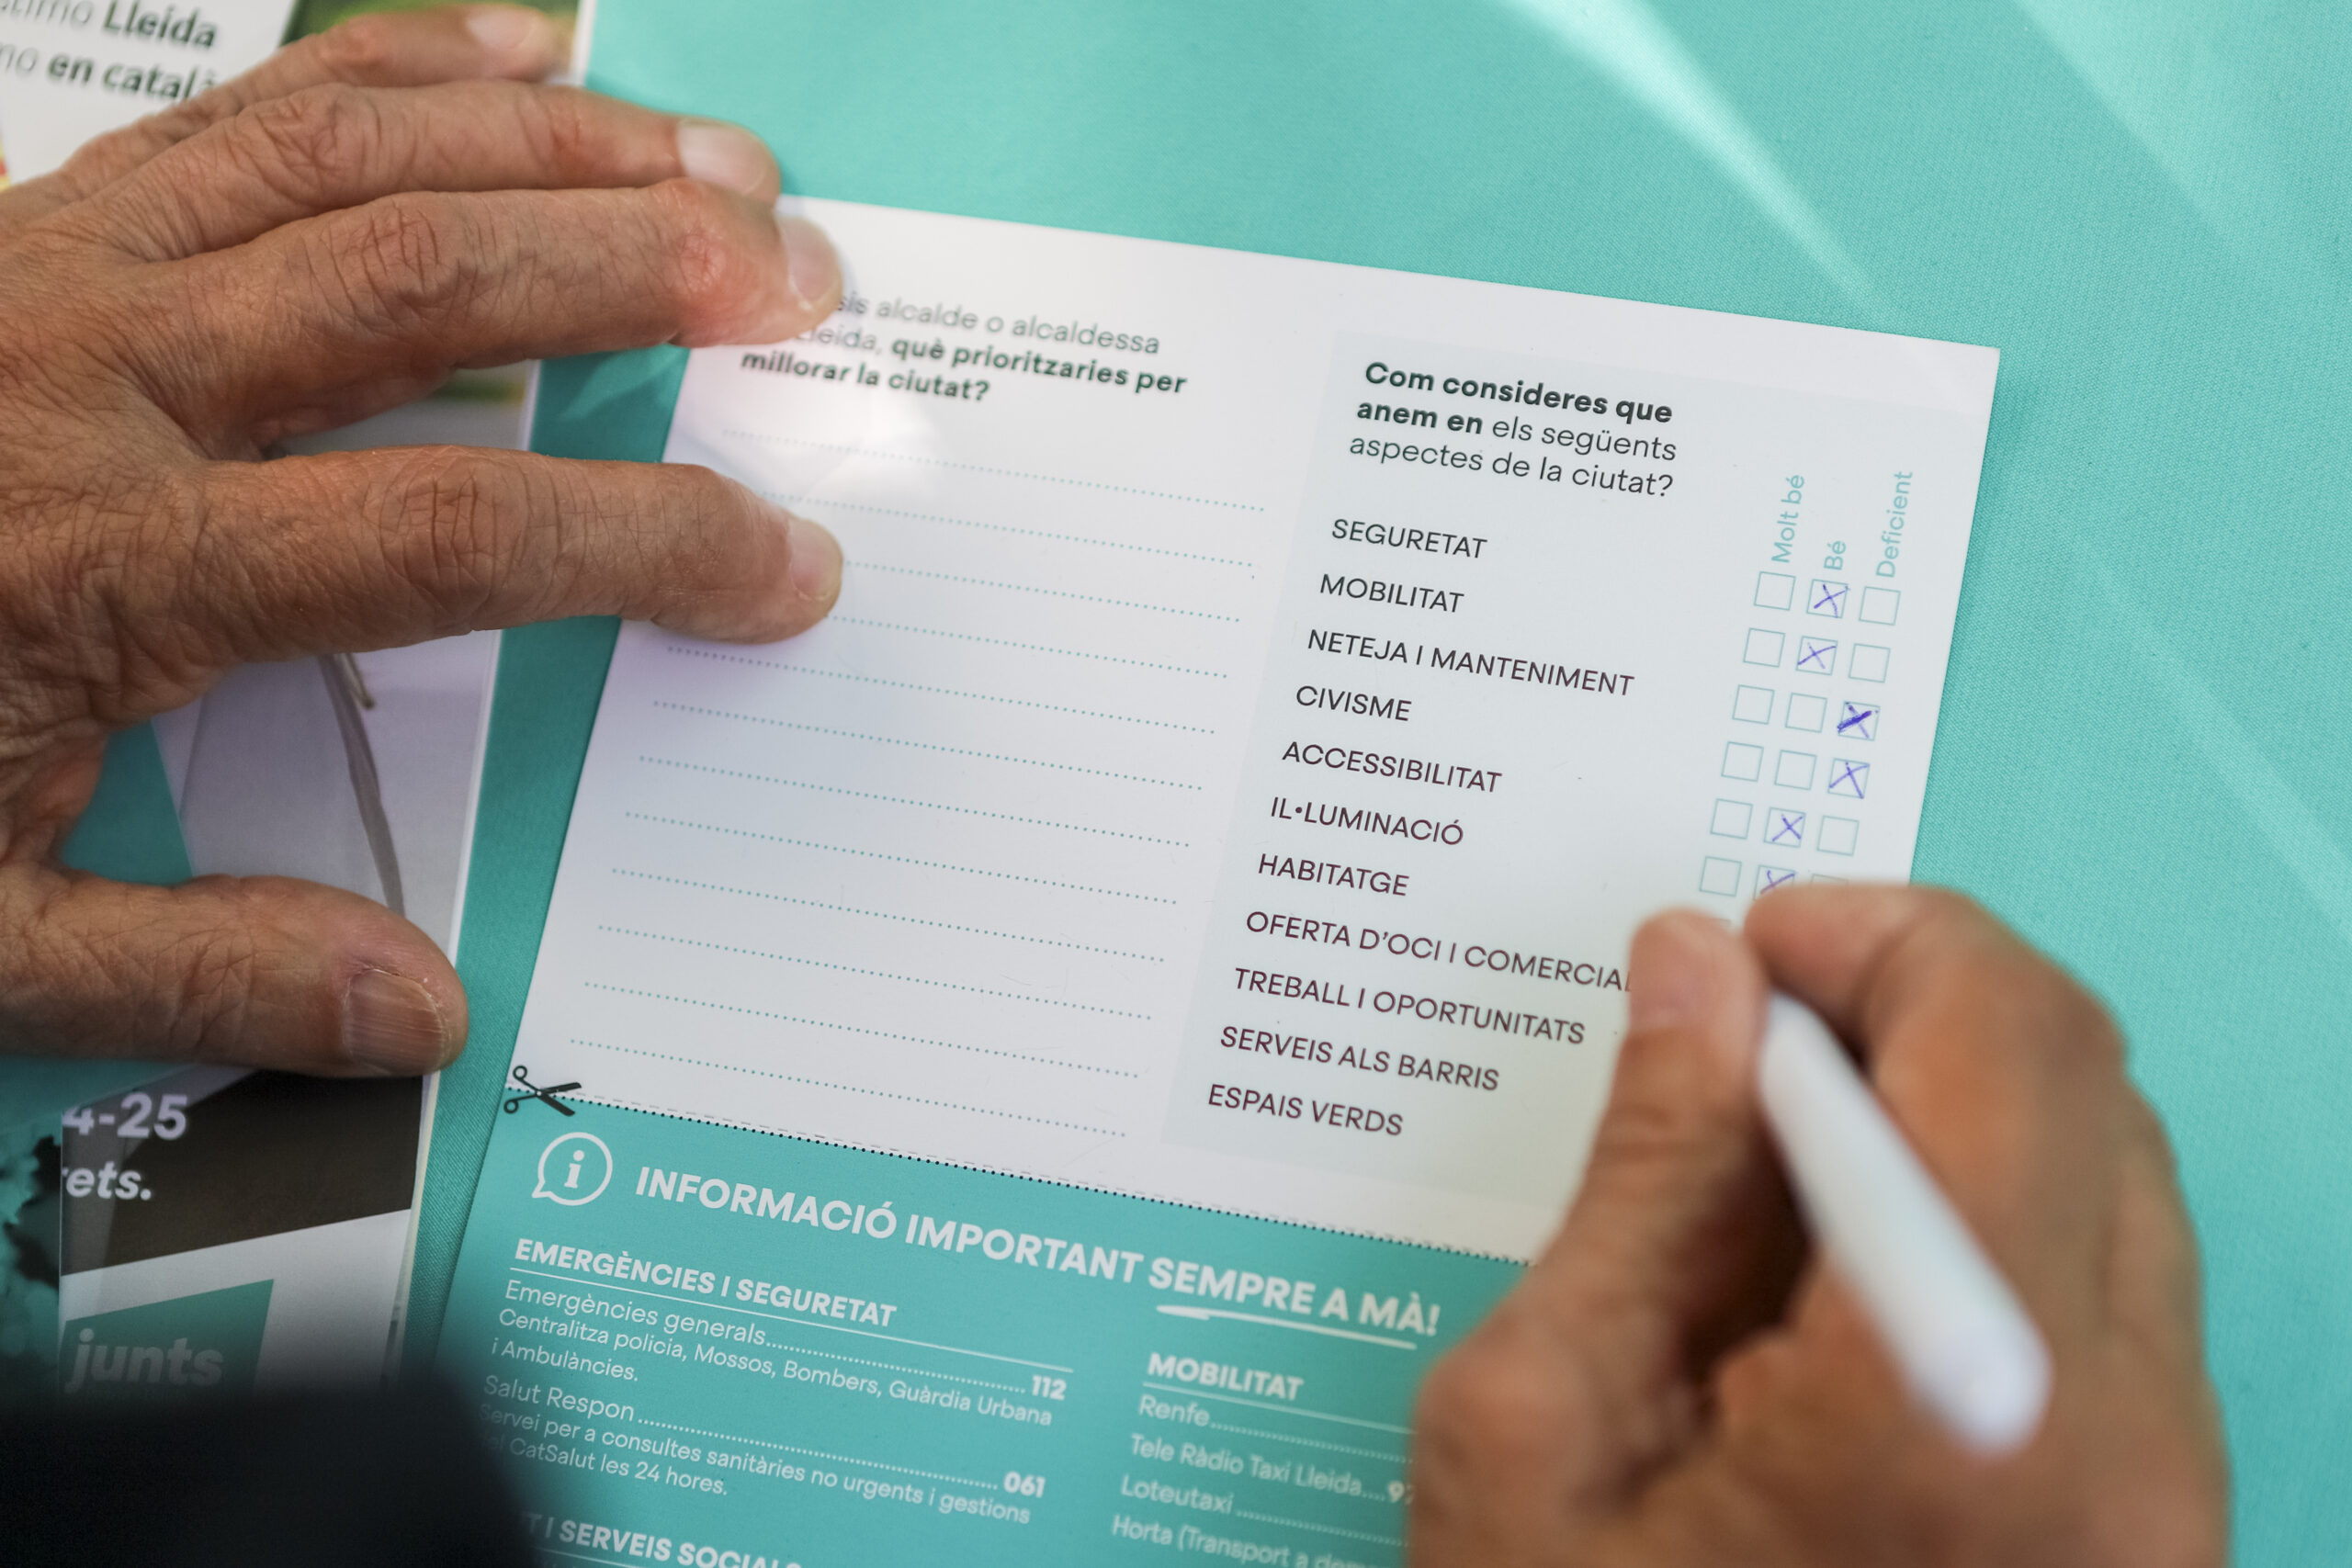 Lleida
en català
sis alcalde o alcaldessa
Lleida, què prioritzaries per
millorar la ciutat?
Com consideres que
anem en els següents
aspectes de la ciutat?
Molt bé
Bé
Deficient
SEGURETAT
MOBILITAT
NETEJA I MANTENIMENT
CIVISME
ACCESSIBILITAT
IL·LUMINACIÓ
HABITATGE
OFERTA D'OCI I COMERCIAL
TREBALL I OPORTUNITATS
SERVEIS ALS BARRIS
ESPAIS VERDS
4-25
rets.
junts
INFORMACIÓ IMPORTANT SEMPRE A MÀ!
EMERGÈNCIES I SEGURETAT
Emergències generals..........112
Centralitza policia, Mossos, Bombers, Guàrdia Urbana
i Ambulàncies.
Salut Respon..........061
Servei per a consultes sanitàries no urgents i gestions
CatSalut les 24 hores.
I SERVEIS SOCIALS
MOBILITAT
Renfe..........
Tele Ràdio Taxi Lleida....97
Loteutaxi..........
Horta (Transport a dem